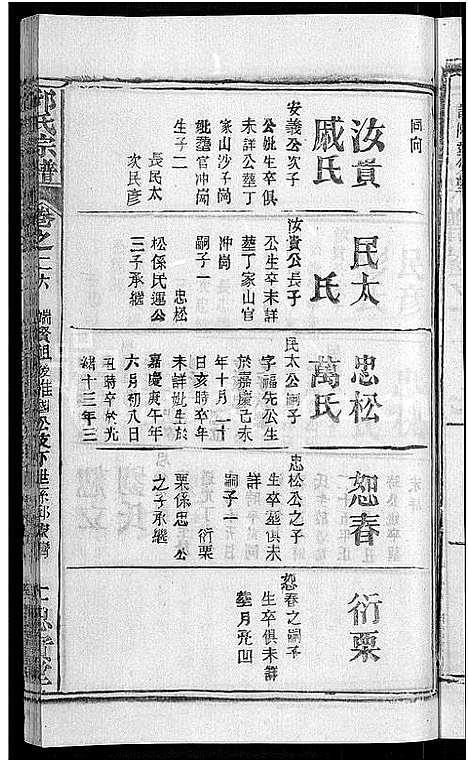 同向
汝貴
戚氏
安義公次子
公妣生卒俱
未詳公塟丁
家山沙子崗
妣塟官冲崗
生子二
長民太
次民彥
民太
氏
汝貴公長子
公生卒未詳
塟丁家山官
冲崗
嗣子一
忠松
松係民運公
三子承繼
忠松
萬氏
民太公嗣子
字福先公生
於嘉慶己未
年十月二十
日亥時卒塟
未詳妣生於
嘉慶庚午年
六月初八日
丑時卒於光
緒十三年三
恕春
忠松公之子
生卒塟俱未
詳
嗣子一
衍栗
栗係忠 公
之子承繼
衍栗
恕春之嗣子
生卒俱未詳
塟月亮凹
氏宗譜
卷之二六